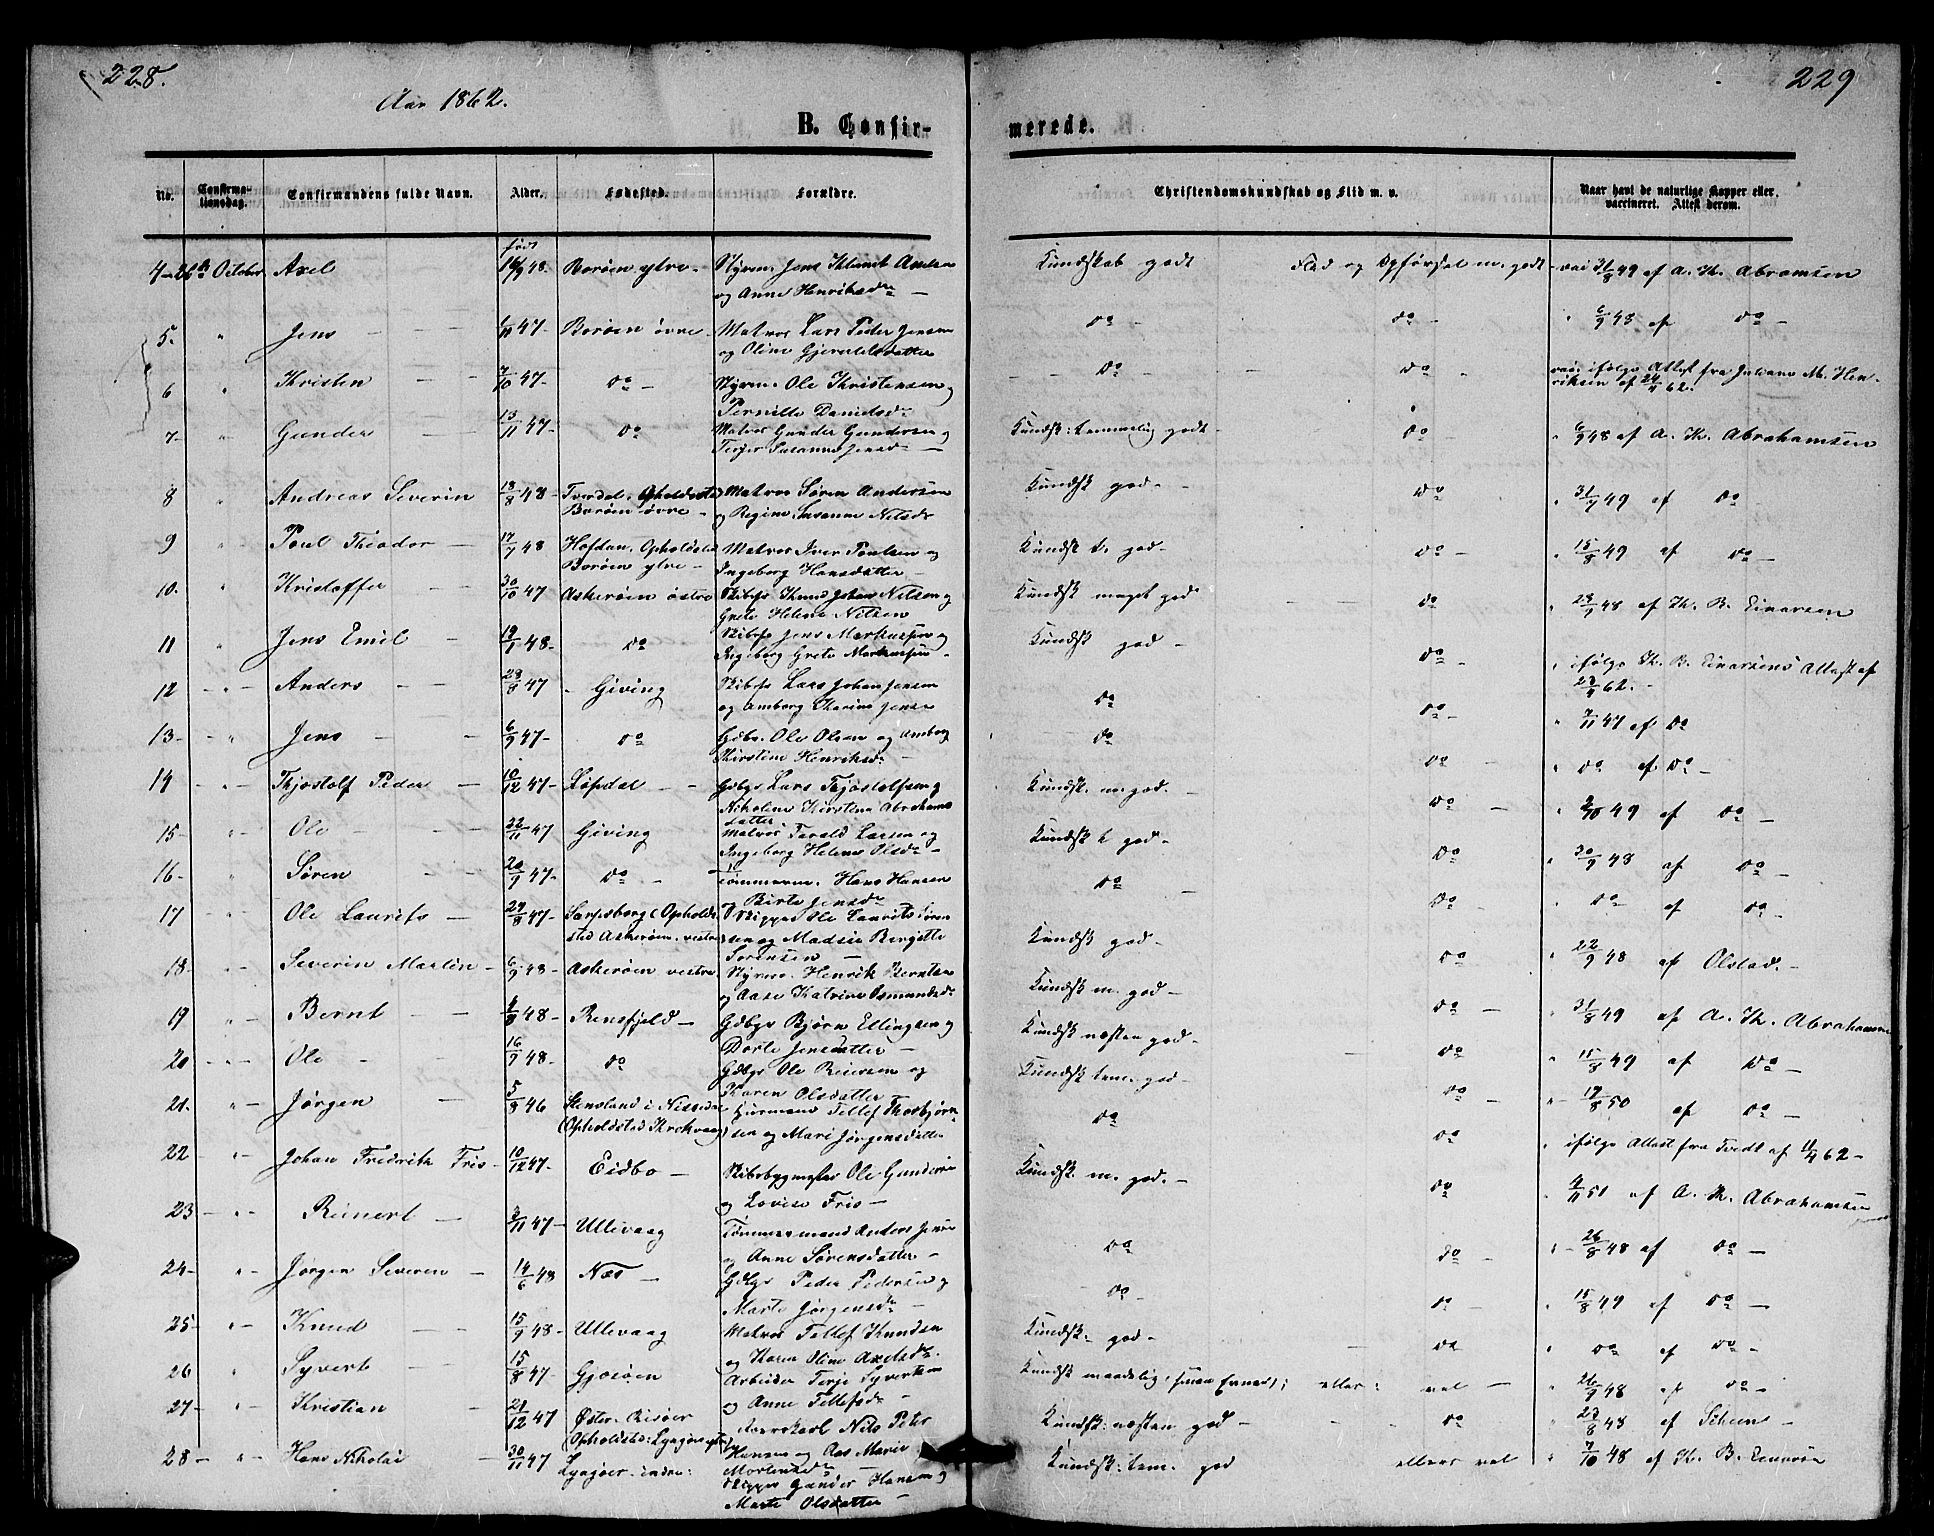 228.
229
Aar 1862.
B. Confir-
merede.
No.
Confirma-
tionsdag.
Confirmandens fulde Navn.
Alder.
Fødested.
Forældre.
Christendomskundskab og Flid m. v.
Naar havt de naturlige Kopper eller
vaccineret. Attest derom.
født
4 26de October Axel 48. Borøen ytre Styrm. Jens
og Anne Henriksdr
Kundskab godt Flid og Opførsel m. godt vac 31/8 49 af A. Th. Abramsen
5. " Jens 47 Borøen øvre Matros Lars Peder Jensen
og Oline
do do " 6/9 48 af do
6 " Kristen 7/10 47 do Styrm. Ole Kristensen og
Pernille Danielsdr
do do vac: ifølge Attest fra Juliane M. Hen-
riksen af 24/4 62.
7 " Gunder 15/11 47 do Matros Gunder Gundersen og
Terjer Susanne Jensdr
Kundsk: temmelig godt do " 6/9 48 af A. Th. Abrahamsen
8 " Andreas Severin 18/8 48 Tverdal. Opholdssted Matros Søren Andersen
Borøen øvre og Regine Susanne Nilsdr
Kundsk god do " 31/7 49 af do
9 " Poul Theodor 17/7 48 Opholdssted Matros Iver Poulsen og
Borøen ytre Ingeborg Hansdatter
Kundsk t. god do " 15/8 49 af do
10. " Kristoffer 30/10 47 Askerøen østre Skibsf Knud Johan Nilsen og
Grete Helene Nilsen
Kundsk meget god do " 48 af Th. B. Einarsen
11 " Jens Emil 19/7 48 do Skibsf Jens Markussen og
Ingeborg Grete Markussen
Kundsk god do " ifølge Th. B. Einarsens Attest af
62.
12 " Anders 47 Giving Skibsf Lars Johan Jensen
og Amborg Karine Jensen
do do " 7/11 47 af do
13 " Jens 6/9 47 do Gdbr. Ole Olsen og Amborg
Kirstine Henriksdr
do do " do af do
14 " Thjostolf Peder 10/12 47 Løvdal Gdbgs Lars Tjøstolfsen og
Nikoline Kirstine Abrahams
datter
Kundsk. m. god. do " 2/10 49 af do
15 " Ole 22/11 47 Giving Matros Tarald Larsen og
Ingeborg Helene Olsdr
Kundsk t god do " 30/9 48 af do
16 " Søren 20/9 47 do Tømmerm. Hans Hansen
og Birte Jensdr
do do " do af do
17 " Ole Laurits 29/8 47 Sarpsborg (Opholds Skipper Ole Laurits Sören
sted Askerøen, vestre) sen og Madsie Bergitte
Sørensen
Kundsk god do " 22/9 48 af Olstad.
18 " Severin Martin 6/9 48 Askerøen vestre Styrm. Henrik Berntsen
og Aase Katrine Osmundsdr
Kundsk m. god do " 31/8 49 af A. Th. Abrahamsen
19 " Bernt 48 Rensfjeld Gdbgs Bjørn Ellingsen og
Dorte Jensdatter
Kundsk næsten god do " 15/8 49 af do
20 " Ole 16/9 48 do Gdbgs Ole Reiersen og
Karen Olsdatter
Kundsk tem. god do " 50 af do
21. " Jørgen 5/8 46 Stensland i Nissedal Tellef Thorbjørn-
(Opholdsted Krokvaag) sen og Mari Jørgensdatter
do do " ifølge Attest fra Tvedt af 62
22 " Johan Fredrik Fris 10/12 47 Eidbo Skibsbygmester Ole Gundersen
og Lovise Fris
Kundsk m. god. do " 51 af A. Th. Abrahamsen
23 " Reinert 3/11 47 Ullevaag Tømmermand Anders Jensen
og Anne Sørensdatter
do do " 26/8 48 af do
24 " Jørgen Severin 14/6 48 Næs Gdbgs Peder Pedersen og
Marte Jørgensdr
do do " 15/8 49 af do
25 " Knud 15/9 48 Ullevaag Matros Tellef Knudsen
og Karen Oline Axelsdr
Kundsk. god do " do af do
26 " Syvert 15/8 47 Gjøsøen Arbeider Terje Syvertsen
og Anne Tellefsdr
Kundsk maadelig (smaa Evner); ellers: vel " 26/9 48 af do
27 " Kristian 21/12 47 Øster-Risøer Nils Peter
(Opholdsted: Lyngøer ytre) Hansen og Aas Marie
Mortensdr
Kundsk: næsten god do " 23/8 48 af Scheen
28 " Hans Nikolai 30/11 47 Lyngøer indre: Skipper Gunder Hansen og
Marte Olsdatter
Kundsk: tem. god ellers vel " 7/10 48 af Th. B. Einarsen